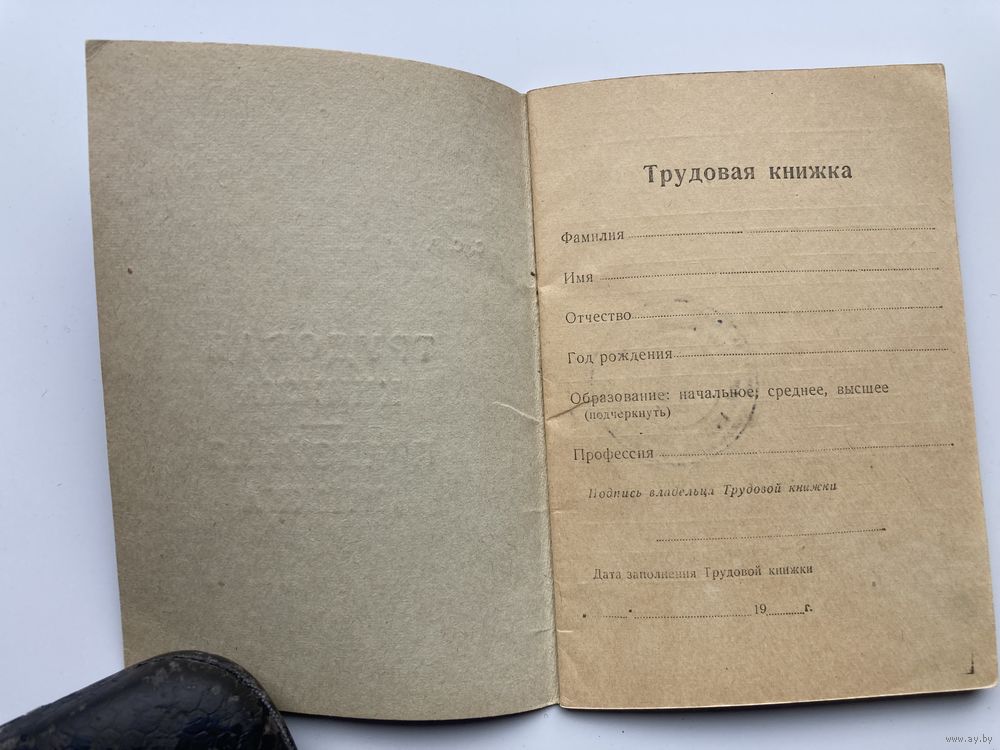 Трудовая книжка
Фамилия
Имя
Отчество
Год рождения
Образование: начальное, среднее, высшее
(подчеркнуть)
Профессия
Подпись владельца Трудовой книжки
Дата заполнения Трудовой книжки
19 г.
www.ay.by